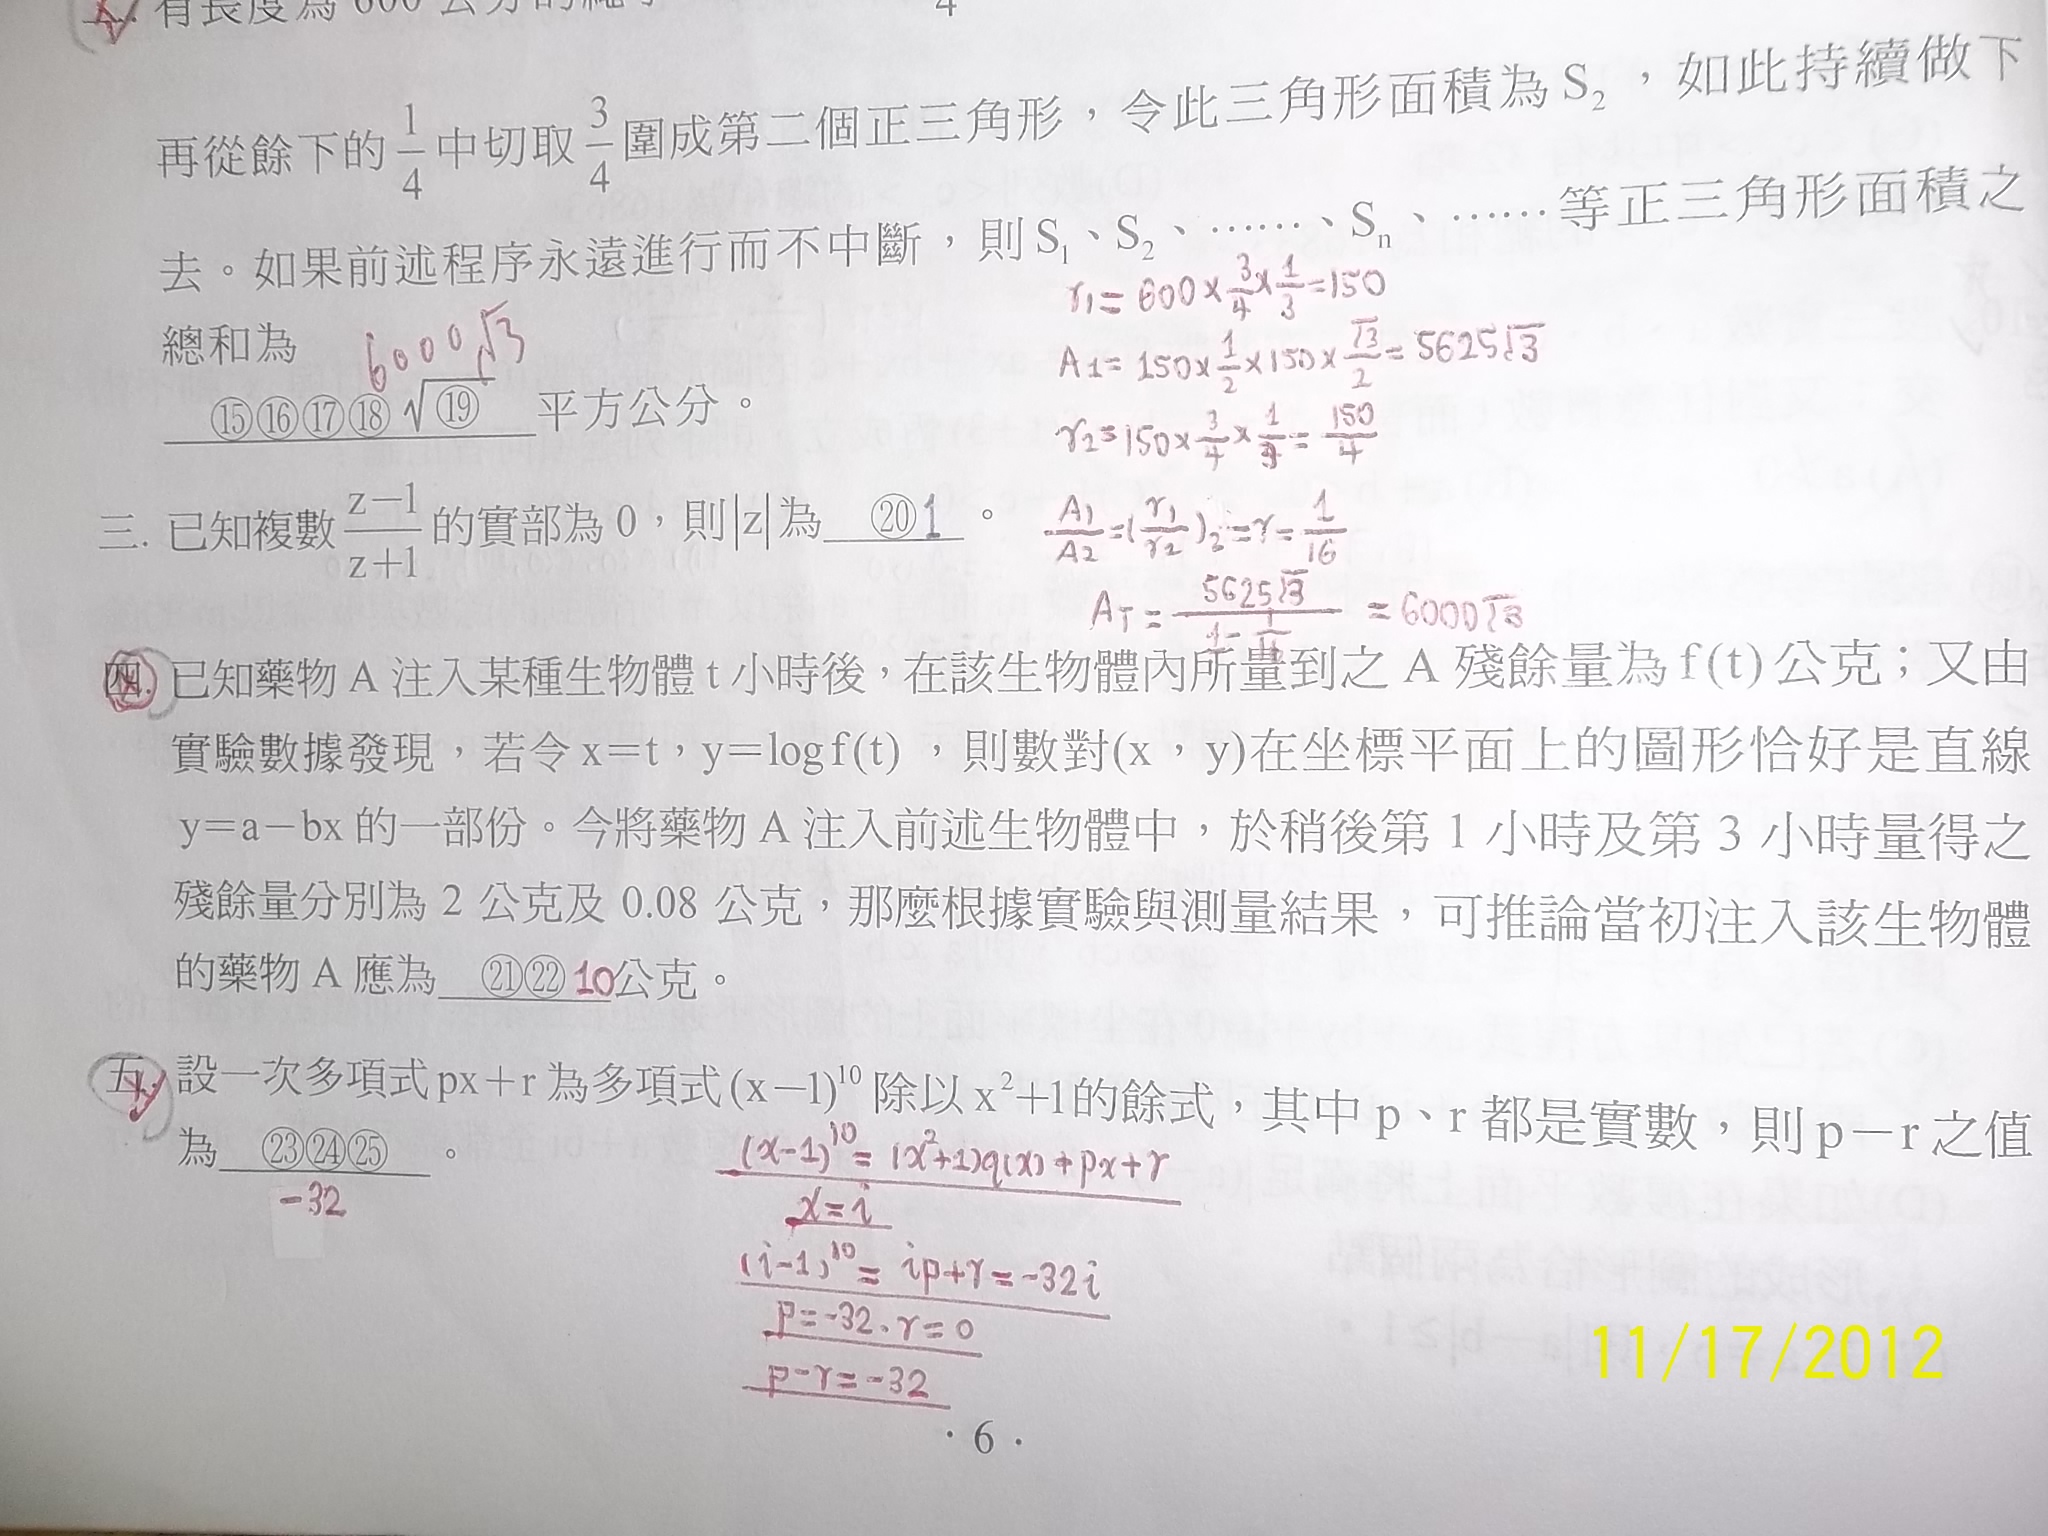 有長度為 600 公分的繩子 4
再從餘下的 1/4 中切取 3/4 圍成第二個正三角形，令此三角形面積為 S₂，如此持續做下
去。如果前述程序永遠進行而不中斷，則 S₁、S₂、……、Sₙ、……等正三角形面積之
r₁=600×3/4×1/3=150
總和為 6000√3
A₁=150×1/2×150×√3/2=5625√3
⑮⑯⑰⑱√⑲ 平方公分。
r₂=150×3/4×1/3=150/4
三. 已知複數 (z−1)/(z+1) 的實部為 0，則|z|為 ⑳1。
A₁/A₂=(r₁/r₂)₂=r=1/16
A_T=5625√3/(1−1/16)=6000√3
四. 已知藥物 A 注入某種生物體 t 小時後，在該生物體內所量到之 A 殘餘量為 f(t) 公克；又由
實驗數據發現，若令 x=t，y=log f(t)，則數對(x，y)在坐標平面上的圖形恰好是直線
y=a−bx 的一部份。今將藥物 A 注入前述生物體中，於稍後第 1 小時及第 3 小時量得之
殘餘量分別為 2 公克及 0.08 公克，那麼根據實驗與測量結果，可推論當初注入該生物體
的藥物 A 應為 ㉑㉒ 10 公克。
五. 設一次多項式 px+r 為多項式 (x−1)¹⁰ 除以 x²+1 的餘式，其中 p、r 都是實數，則 p−r 之值
為 ㉓㉔㉕。
-32
(x-1)¹⁰=(x²+1)q(x)+px+r
x=i
(i-1)¹⁰=ip+r=-32i
p=-32、r=0
p-r=-32
11/17/2012
·6·